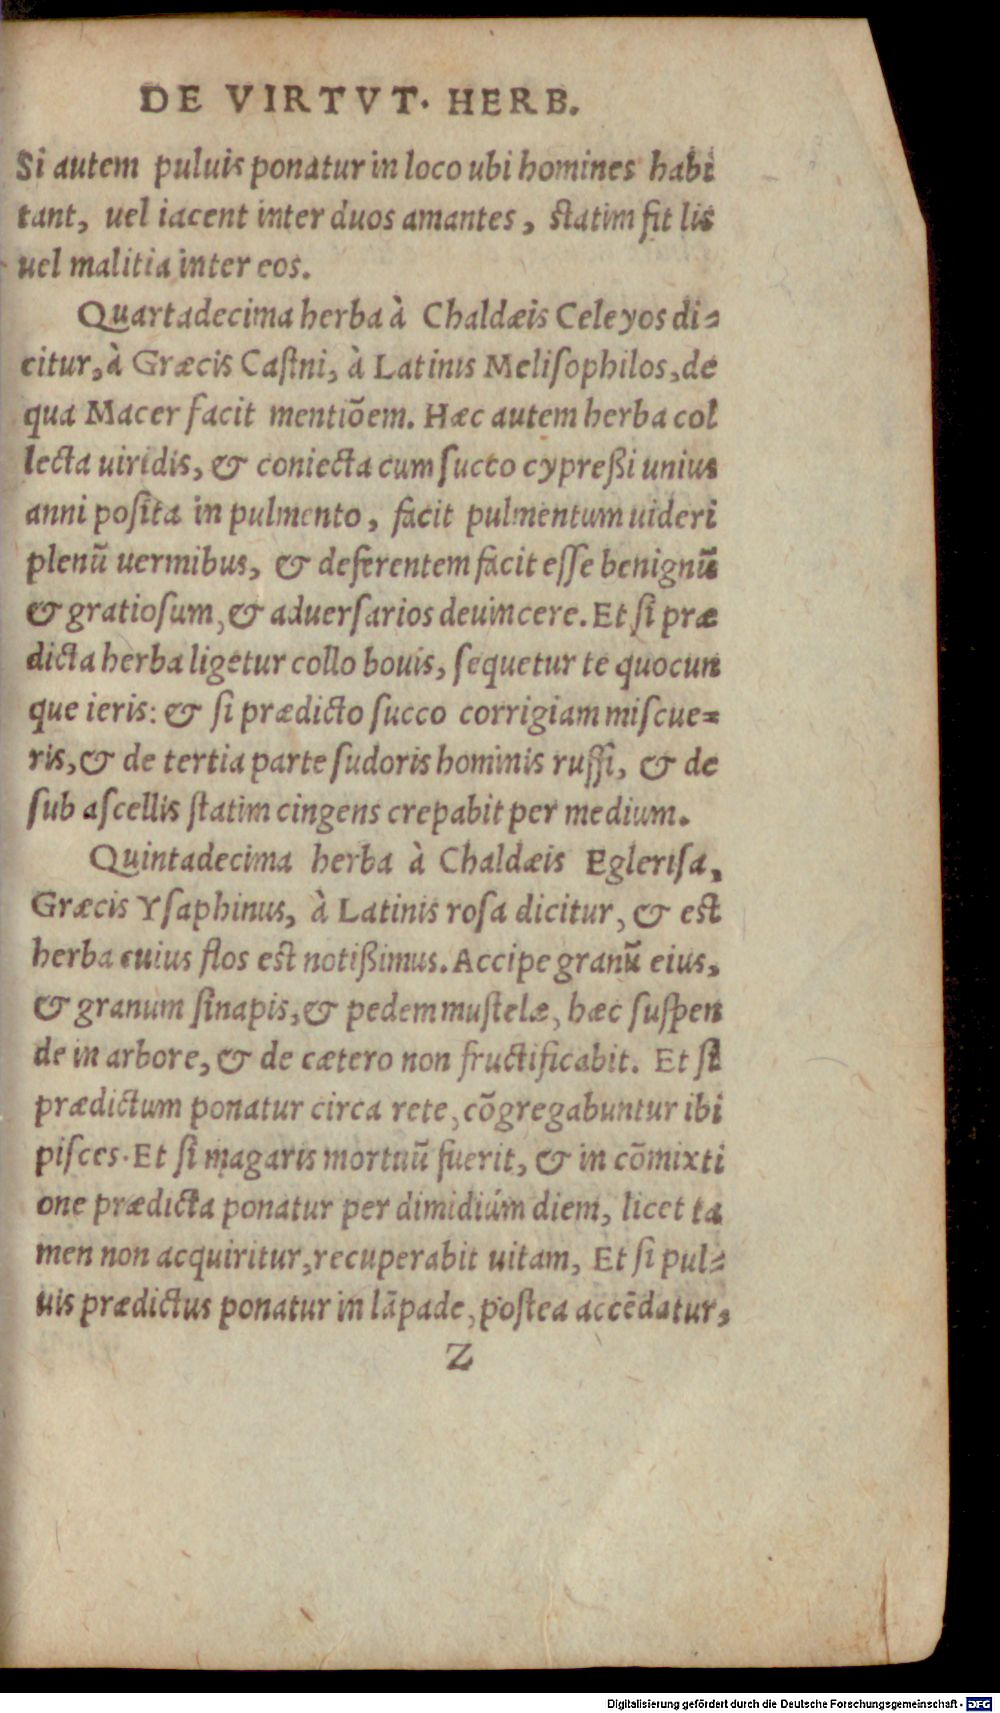 DE VIRTVT. HERB.
Si autem puluis ponatur in loco ubi homines habi
tant, uel iacent inter duos amantes, statim fit lis
uel malitia inter eos.
Quartadecima herba à Chaldæis Celeyos di-
citur, à Græcis Castni, à Latinis Melisophilos, de
qua Macer facit mentiõem. Hæc autem herba col
lecta uiridis, & coniecta cum succo cypreßi unius
anni posita in pulmento, facit pulmentum uideri
plenũ uermibus, & deferentem facit esse benignũ
& gratiosum, & aduersarios deuincere. Et si præ
dicta herba ligetur collo bouis, sequetur te quocun
que ieris: & si prædicto succo corrigiam miscue-
ris, & de tertia parte sudoris hominis ruffi, & de
sub ascellis statim cingens crepabit per medium.
Quintadecima herba à Chaldæis Eglerisa,
Græcis Ysaphinus, à Latinis rosa dicitur, & est
herba cuius flos est notißimus. Accipe granũ eius,
& granum sinapis, & pedem mustelæ, hæc suspen
de in arbore, & de cætero non fructificabit. Et si
prædictum ponatur circa rete, cõgregabuntur ibi
pisces. Et si magaris mortuũ fuerit, & in cõmixti
one prædicta ponatur per dimidiúm diem, licet ta
men non acquiritur, recuperabit uitam, Et si pul-
uis prædictus ponatur in lãpade, postea accẽdatur,
Z
Digitalisierung gefördert durch die Deutsche Forschungsgemeinschaft - DFG